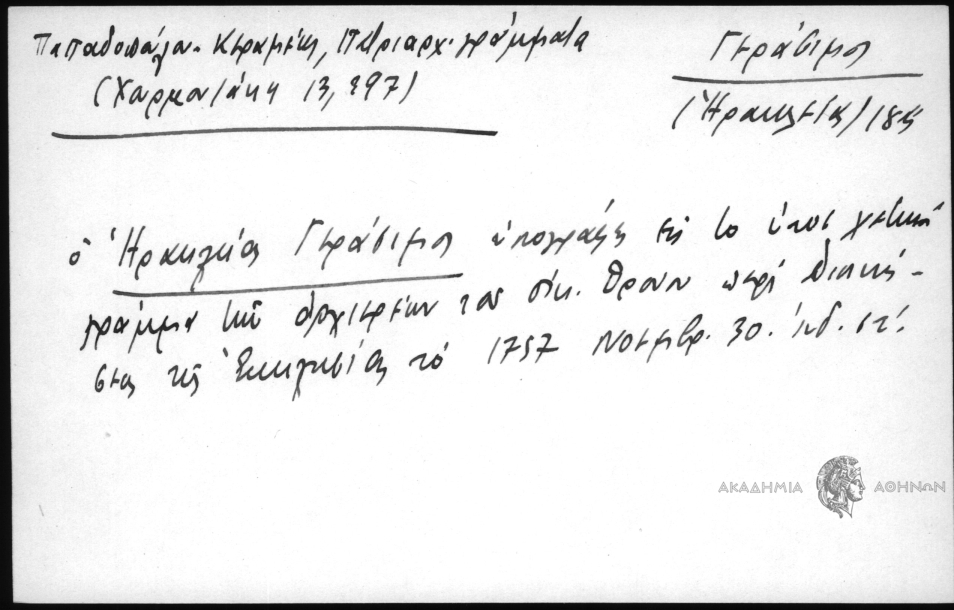 Παπαδοπούλου - Κεραμέως, Πατριαρχ. γράμματα
(Χαρμονιάκη 13, 297)
Γεράσιμος
(Ἡρακλείας) 185
ὁ Ἡρακλείας Γεράσιμος ὑπογράφει εἰς τὸ
γράμμα τῶν ἀρχιερέων τοῦ οἰκ. θρόνου περὶ διοική-
σεως τῆς Ἐκκλησίας τὸ 1757 Νοεμβρ. 30. ἰνδ. στ΄.
ΑΚΑΔΗΜΙΑ ΑΘΗΝΩΝ